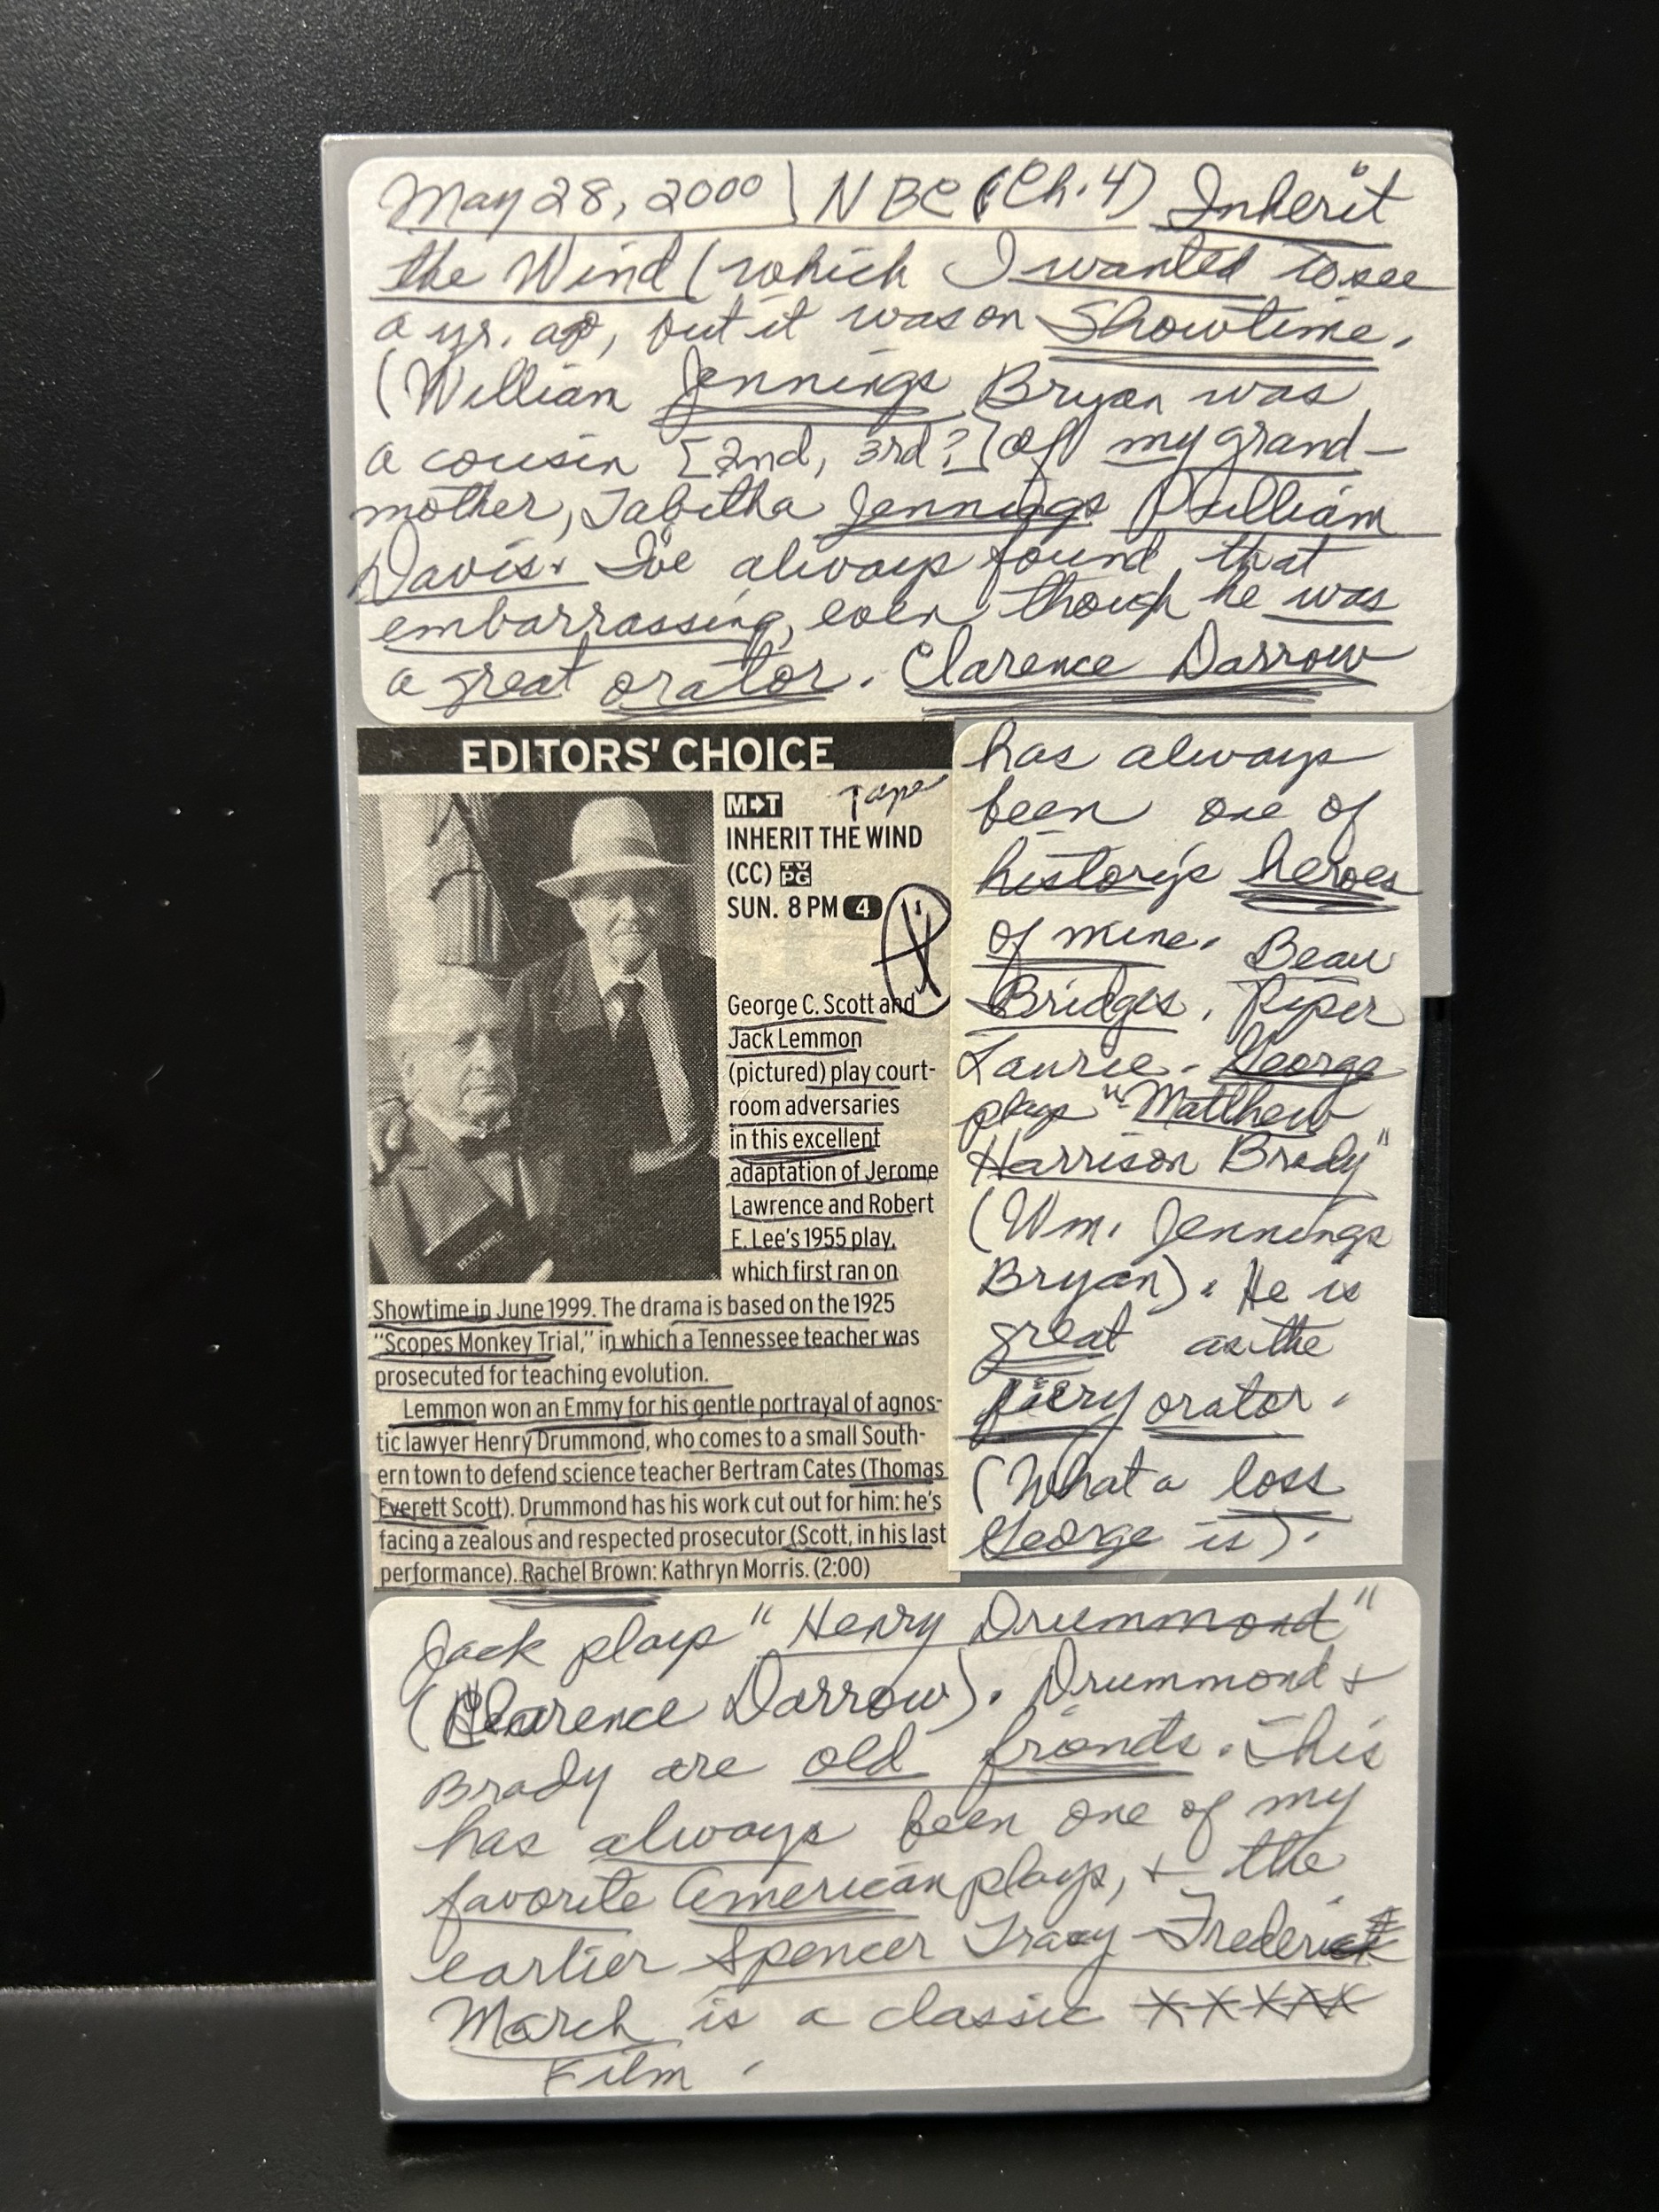 May 28, 2000 | NBC (Ch. 4) Inherit
the Wind (which I wanted to see
a yr. ago, but it was on Showtime.
(William Jennings Bryan was
a cousin [2nd, 3rd?] of my grand-
mother, Tabitha Jennings Pulliam
Davis. I've always found that
embarrassing, even though he was
a great orator. Clarence Darrow
has always
been one of
history's heroes
of mine. Beau
Bridges, Piper
Laurie. George
plays "Matthew
Harrison Brady"
(Wm. Jennings
Bryan). He is
great as the
fiery orator.
(What a loss
George is).
EDITORS' CHOICE
M➔T Tape
INHERIT THE WIND
(CC) TV PG
SUN. 8 PM 4
George C. Scott and
Jack Lemmon
(pictured) play court-
room adversaries
in this excellent
adaptation of Jerome
Lawrence and Robert
E. Lee's 1955 play,
which first ran on
Showtime in June 1999. The drama is based on the 1925
"Scopes Monkey Trial," in which a Tennessee teacher was
prosecuted for teaching evolution.
Lemmon won an Emmy for his gentle portrayal of agnos-
tic lawyer Henry Drummond, who comes to a small South-
ern town to defend science teacher Bertram Cates (Thomas
Everett Scott). Drummond has his work cut out for him: he's
facing a zealous and respected prosecutor (Scott, in his last
performance). Rachel Brown: Kathryn Morris. (2:00)
Jack plays "Henry Drummond"
(Clarence Darrow). Drummond +
Brady are old friends. This
has always been one of my
favorite American plays, + the
earlier Spencer Tracy-Frederick
March is a classic XXXXX
Film.